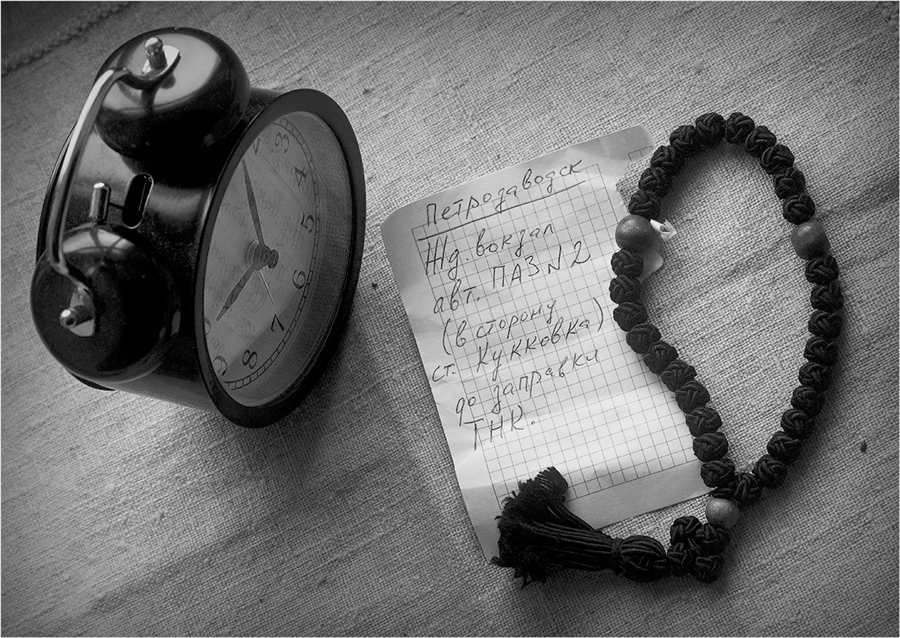 2
3
4
5
6
7
8
9
Петрозаводск
Жд. вокзал
авт. ПАЗ №2
(в сторону
ст. Кукковка)
до заправки
ТНК.